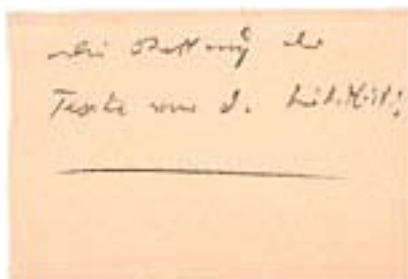 die Rettung der
Texte von d.